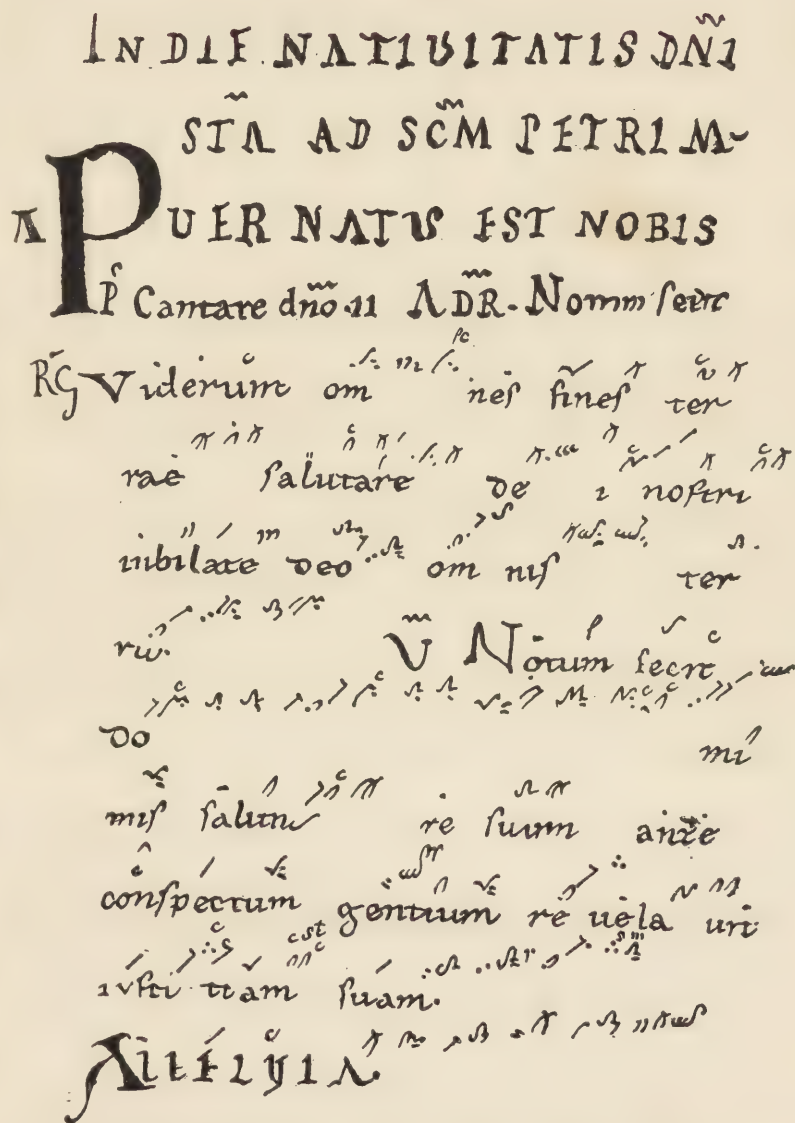 IN DIE NATIUITATIS DNI
STA AD SCM PETRI M
A PUER NATUS EST NOBIS
P Cantare dno .11 ADR. Nomm fecit
RG Viderunt om nes fines ter
rae salutare de i nostri
iubilate deo omnis ter
ra. V Notum fecit
do mi
nus saluta re suum ante
conspectum gentium re uela uit
iusti tiam suam.
ALLELUIA.